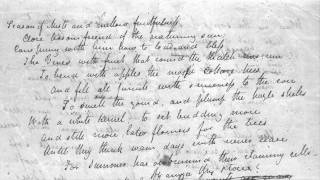 Season of Mists and mellow fruitfulness
Close bosom friend of the maturing sun
Conspiring with him how to load and bless
The Vines with fruit that round the thatch eves run
To bend with apples the moss'd Cottage trees
And fill all furuits with sweeness to the core
To swell the gourd, and plump the hazle shells
With a white kernel; to set budding more
And still more later flowers for the bees
Until they think wam days with never cease
For Summer has o'erbrimm'd their clammy cells